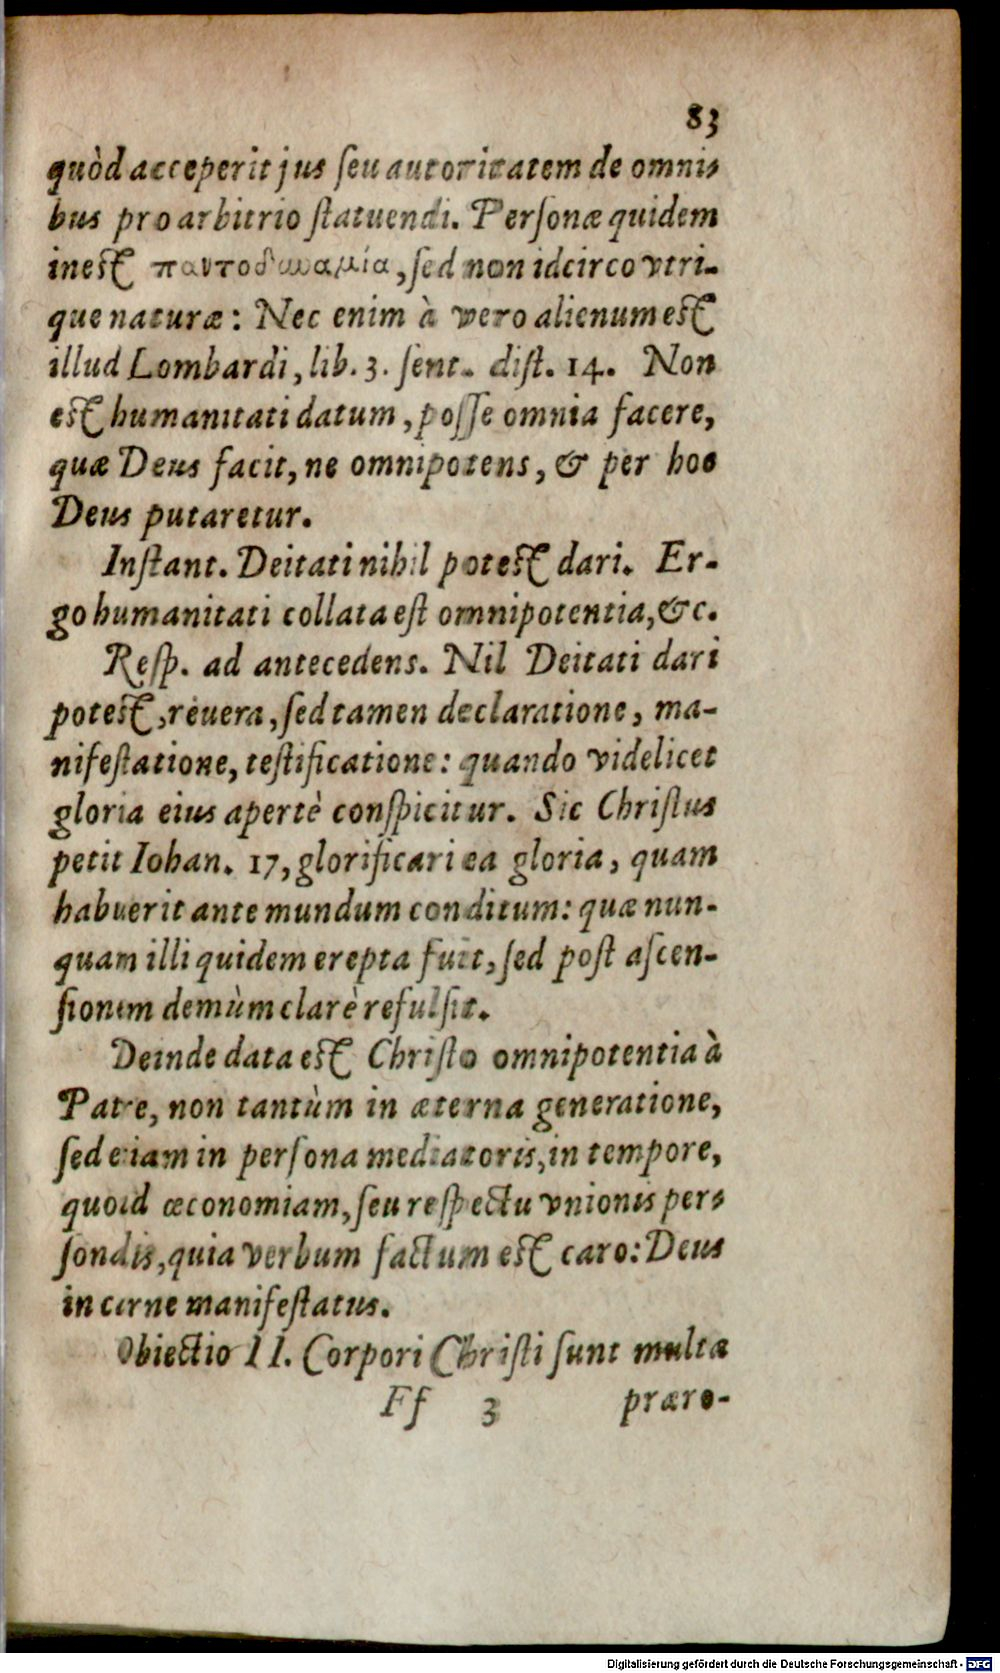 83
quòd acceperit jus ſeu autoritatem de omni-
bus pro arbitrio ſtatuendi. Perſonæ quidem
ineſt παντοδυναμία, ſed non idcirco vtri-
que naturæ: Nec enim à vero alienum eſt
illud Lombardi, lib. 3. ſent. diſt. 14. Non
eſt humanitati datum, poſſe omnia facere,
quæ Deus facit, ne omnipotens, & per hoc
Deus putaretur.
Inſtant. Deitati nihil poteſt dari. Er-
go humanitati collata eſt omnipotentia, &c.
Reſp. ad antecedens. Nil Deitati dari
poteſt, reuera, ſed tamen declaratione, ma-
nifeſtatione, teſtificatione: quando videlicet
gloria eius apertè conſpicitur. Sic Chriſtus
petit Iohan. 17, glorificari ea gloria, quam
habuerit ante mundum conditum: quæ nun-
quam illi quidem erepta fuit, ſed poſt aſcen-
ſionem demùm clarè refulſit.
Deinde data eſt Chriſto omnipotentia à
Patre, non tantùm in æterna generatione,
ſed etiam in perſona mediatoris, in tempore,
quoad œconomiam, ſeu reſpectu vnionis per-
ſonalis, quia verbum factum eſt caro: Deus
in carne manifeſtatus.
Obiectio II. Corpori Chriſti ſunt multa
Ff 3 præro-
Digitalisierung gefördert durch die Deutsche Forschungsgemeinschaft - DFG